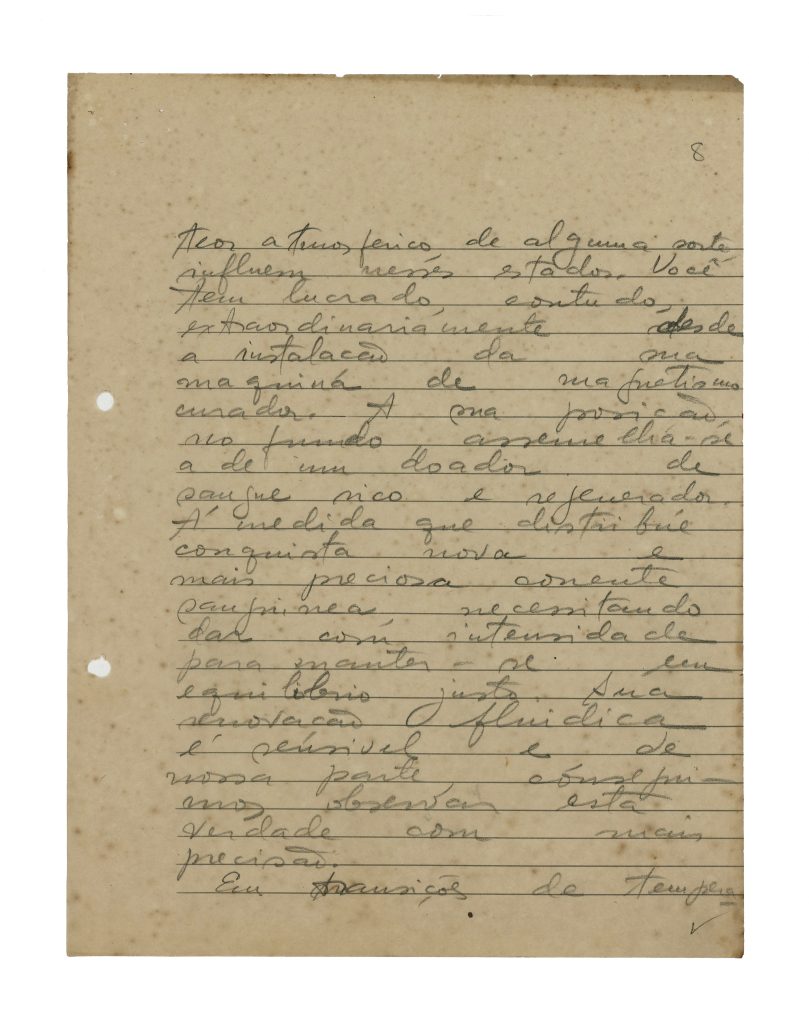 8
teor atmosferico de alguma sorte
influem nesses estados. Você
tem lucrado, contudo,
extraordinariamente desde
a instalação da sua
maquina de magnetismo
curador. A sua posição,
no fundo, assemelha-se
a de um doador de
sangue rico e regenerador.
Á medida que distribúe
conquista nova e
mais preciosa corrente
sanguinea necessitando
dar com intensidade
para manter-se em
equilibrio justo. Sua
renovação fluidica
é sensivel e de
nossa parte, consegui-
mos observar esta
verdade com mais
precisão.
Em transições de tempera